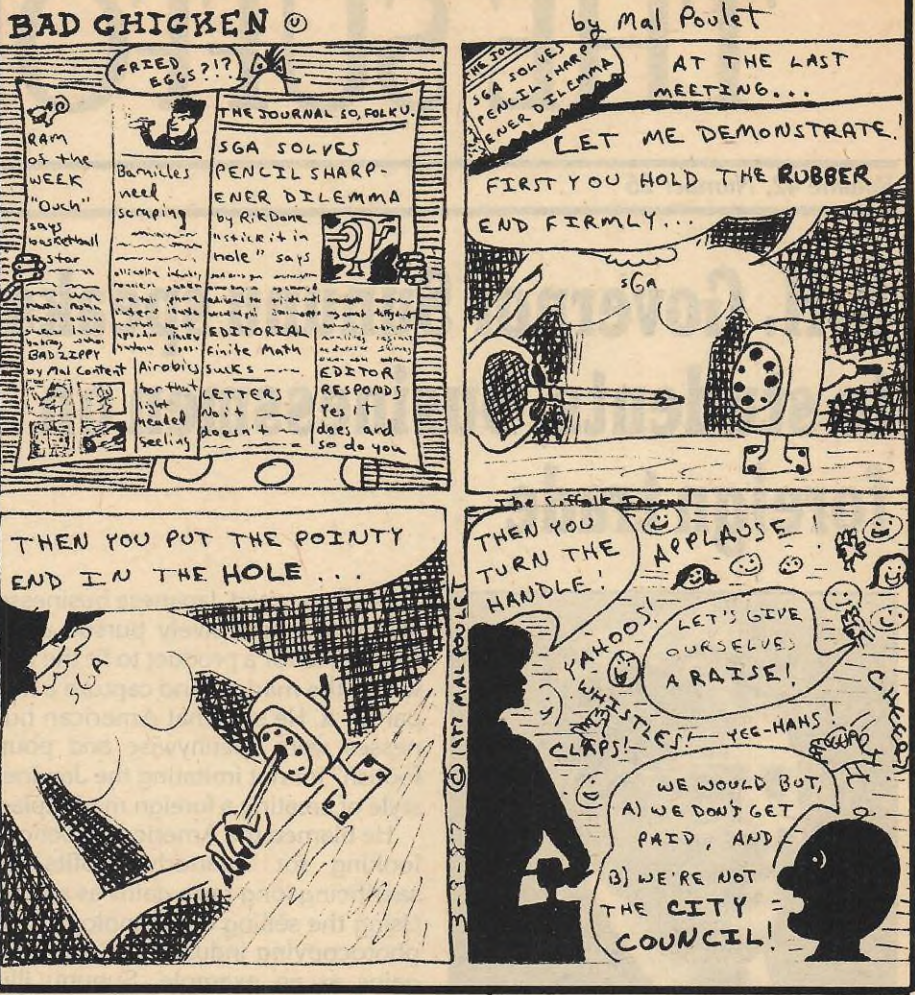 BAD CHICKEN
by Mal Poulet
FRIED
EGGS?!?
RAM
OF the
WEEK
"Ouch"
says
basketball
star
BAD ZIPPY
by Mal Content
Barnicles
need
scraping
Airobics
for that
light
headed
feeling
THE JOURNAL SO, FOLK U.
SGA SOLVES
PENCIL SHARP-
ENER DILEMMA
by Rik Dane
"stick it in
hole" says
EDITORIAL
Finite Math
sucks
LETTERS
No it
doesn't
EDITOR
RESPONDS
Yes it
does and
so do you
THE JOU
SGA SOLVES
PENCIL SHARP-
ENER DILEMMA
AT THE LAST
MEETING...
LET ME DEMONSTRATE!
FIRST YOU HOLD THE RUBBER
END FIRMLY...
SGA
THEN YOU PUT THE POINTY
END IN THE HOLE...
3-9-87 © 1977 MAL POULET
The Suffolk Journal
THEN YOU
TURN THE
HANDLE!
APPLAUSE
YAHOOS!
WHISTLES!
CLAPS!
LET'S GIVE
OURSELVES
A RAISE!
CHEERS!
YEE-HAHS!
WE WOULD BUT,
A) WE DON'T GET
PAID, AND
B) WE'RE NOT
THE CITY
COUNCIL!